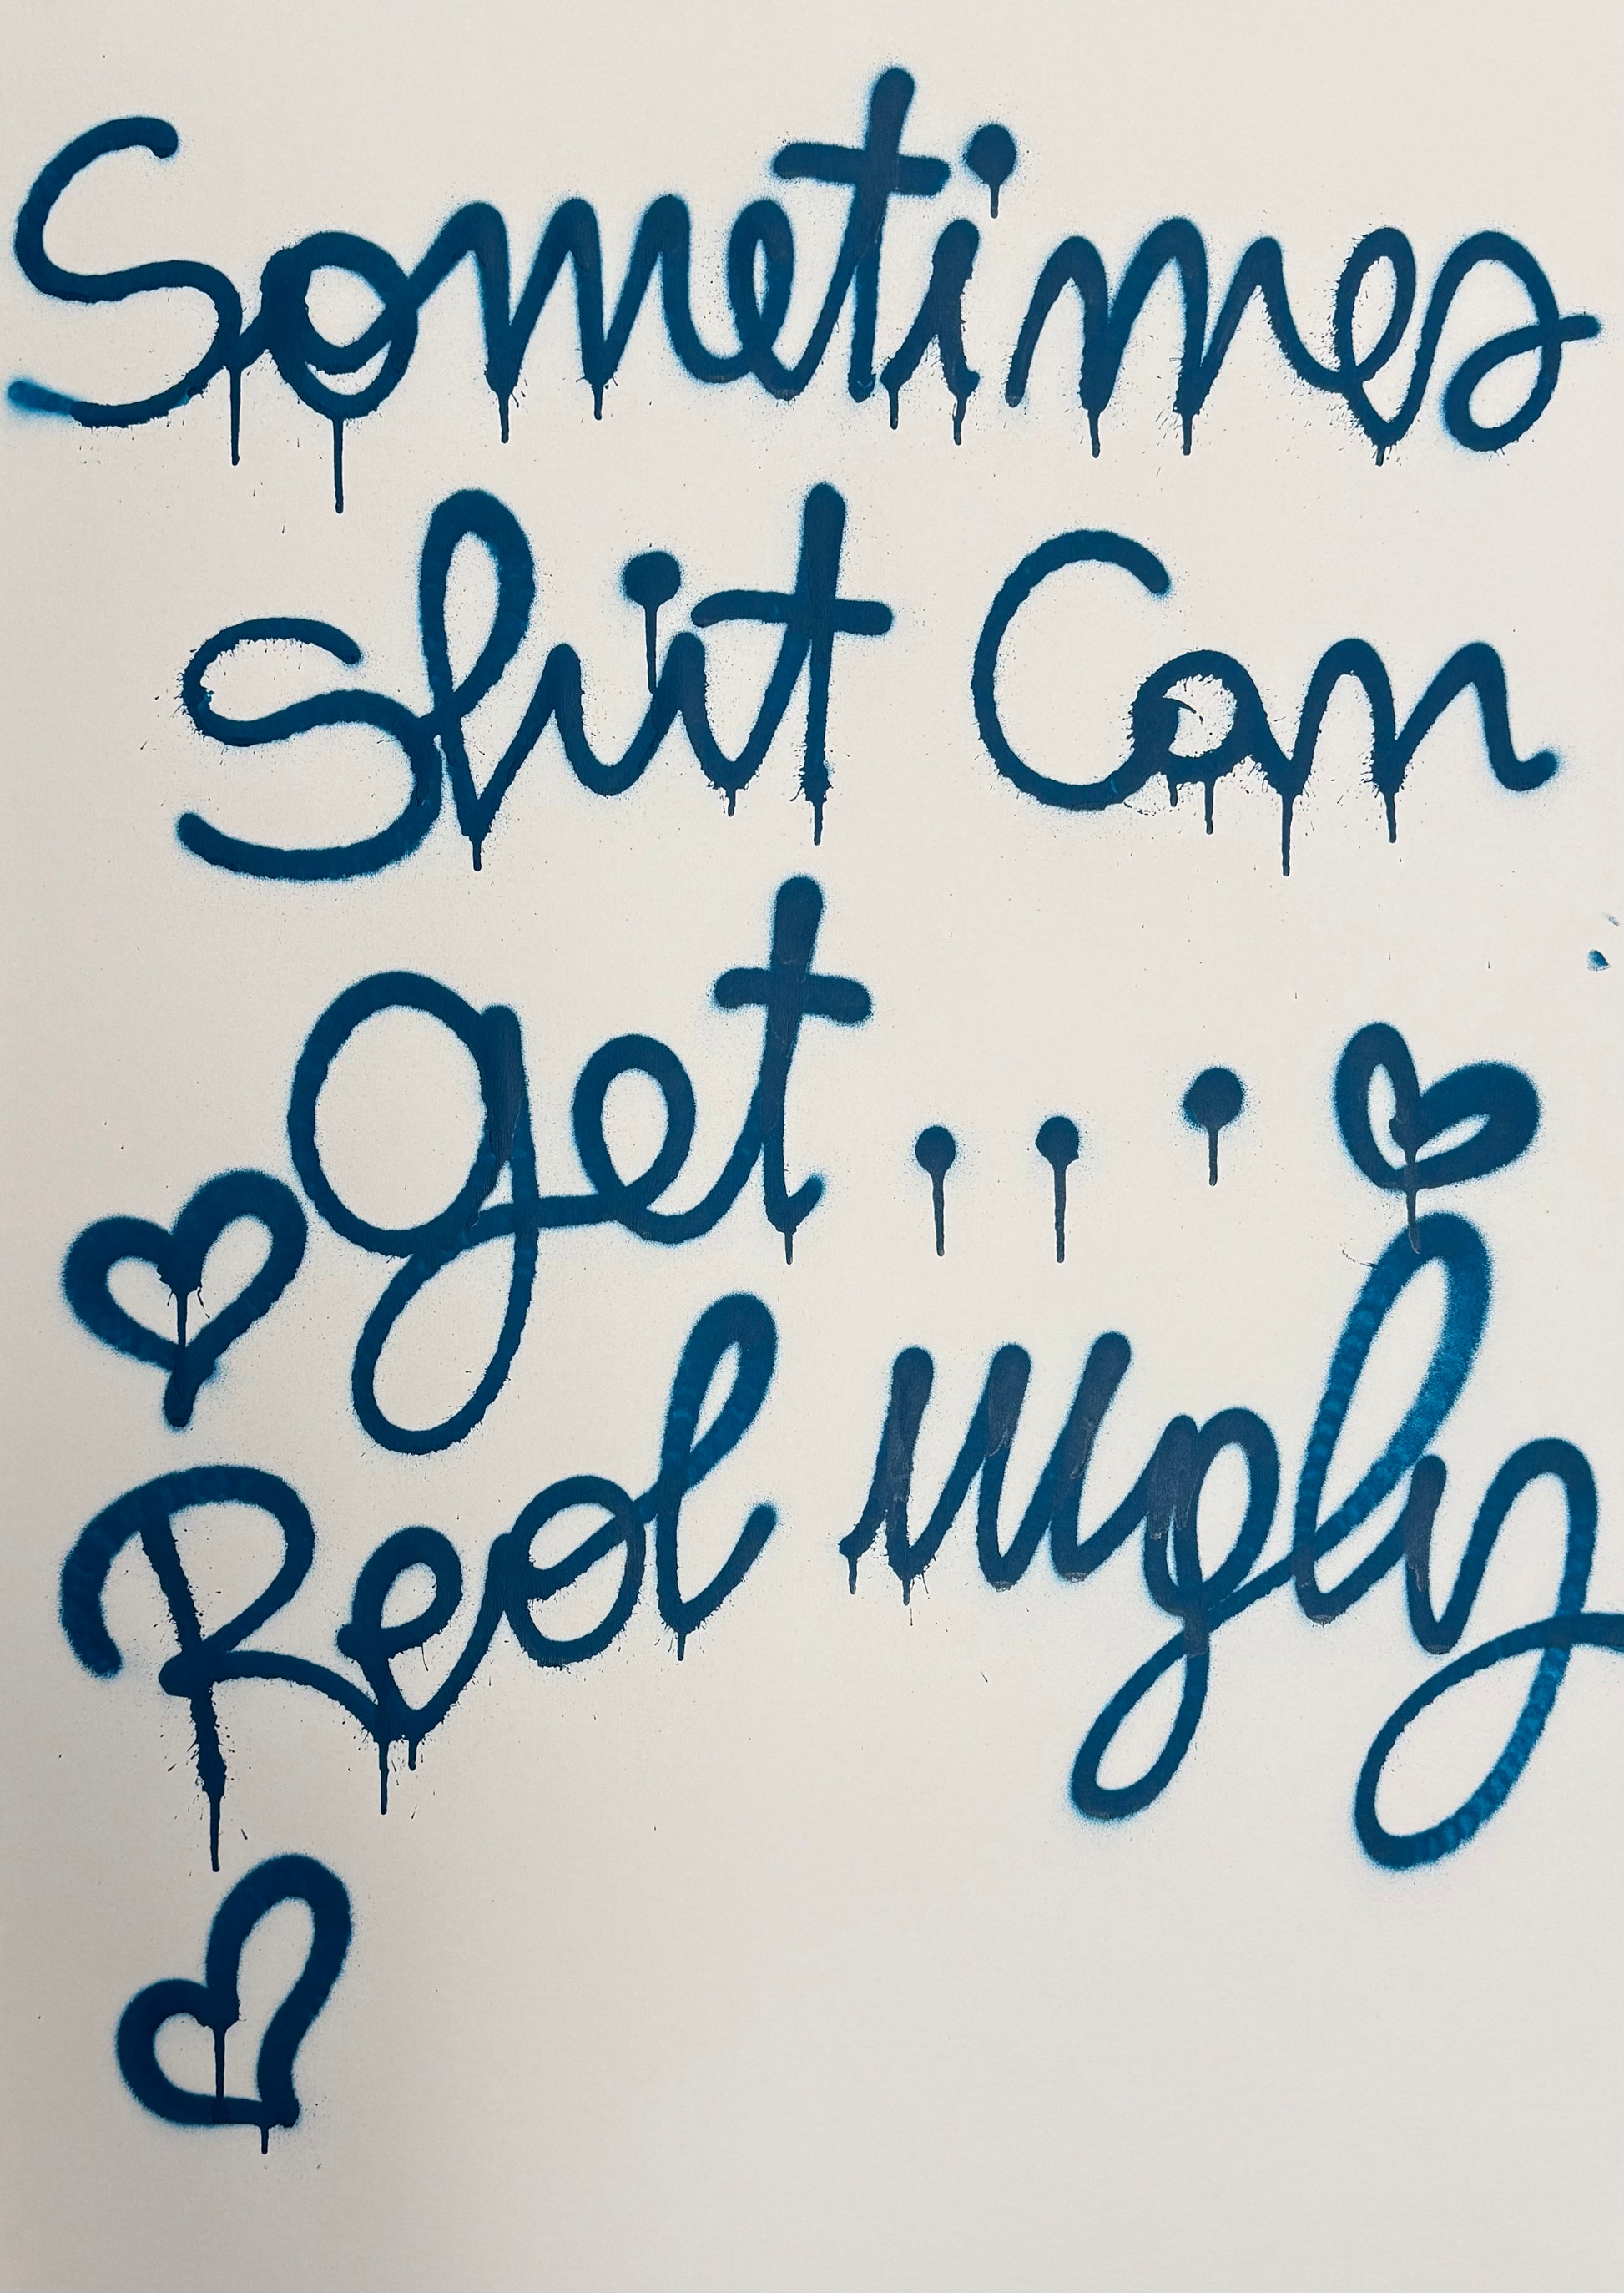 Sometimes
shit Can
get...
Real ugly